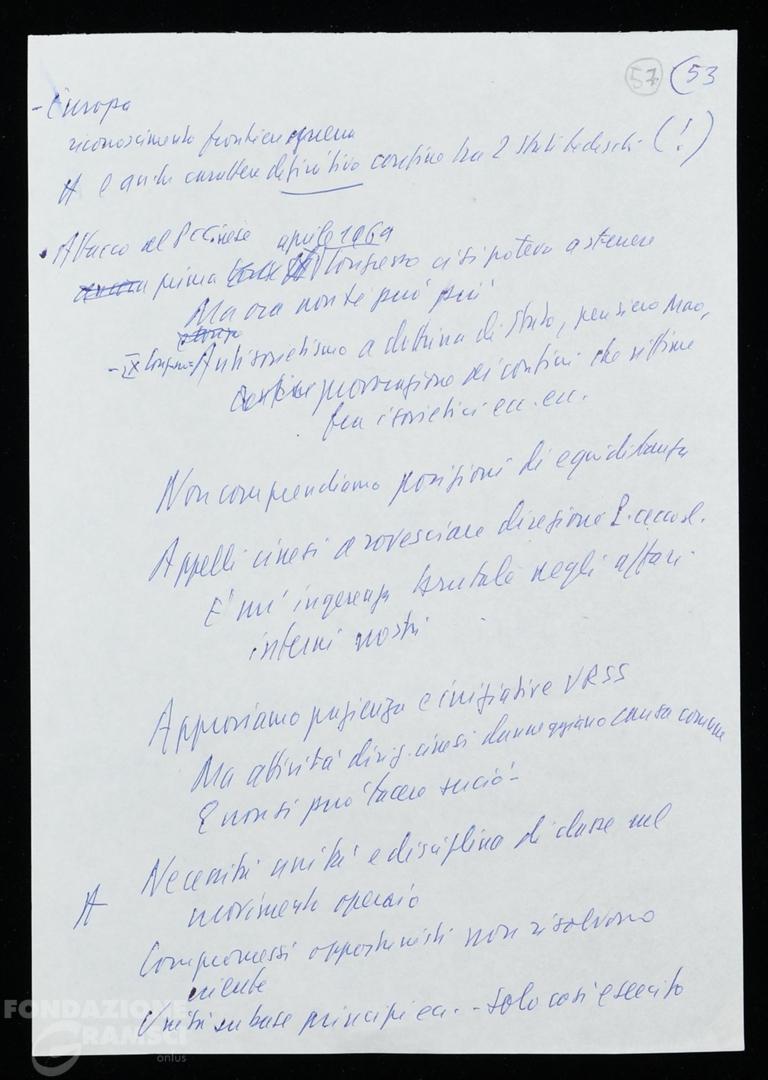 57 53
- Europa
riconoscimento frontiere
A e anche carattere definitivo confine tra 2 stati tedeschi (!)
• Attacco al PC Cinese aprile 1969
ancora prima Congresso ci si poteva astenere
Ma ora non se può più
- IX Congresso = Antisovietismo a dottrina di Stato, pensiero Mao,
provocazione ai confini che vittime
fra i sovietici ecc. ecc.
Non comprendiamo posizioni di equidistanza
Appelli cinesi a rovesciare direzione P. cecosl.
E' un' ingerenza brutale negli affari
interni nostri
Approviamo pazienza e iniziative URSS
Ma attività dirig. cinesi danneggiano causa comune
E non si può tacere su ciò -
A Necessità unità e disciplina di classe nel
movimento operaio
Compromessi opportunisti non risolvono
niente
Unità su base principi ecc. - solo così esercito
FONDAZIONE
GRAMSCI
onlus